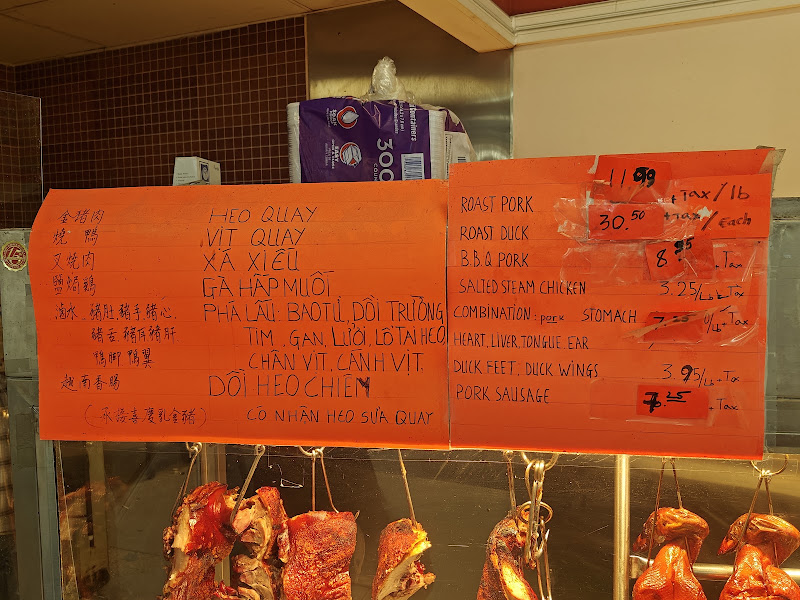 300
Containers
金猪肉 HEO QUAY
燒 鴨 VỊT QUAY
叉燒肉 XÁ XÍEU
鹽焗鷄 GÀ HẤP MUỐI
滷水、豬肚,豬手,豬心, PHÁ LẤU: BAO TỬ, DỒI TRƯỜNG
豬舌.豬耳豬肝 TIM, GAN, LƯỠI, LỖ TAI HEO,
鴨腳 鴨翼 CHÂN VỊT, CÁNH VỊT,
越南香腸 DỒI HEO CHIÊN
(承接喜慶乳金豬) CÓ NHẬN HEO SỮA QUAY
ROAST PORK 11.99 +Tax/lb
ROAST DUCK 30.50 +Tax/Each
B.B.Q PORK 8.95 +Tax
SALTED STEAM CHICKEN 3.25/Lb+Tax
COMBINATION: PORK STOMACH 7.25 /Lb+Tax
HEART, LIVER, TONGUE, EAR
DUCK, FEET, DUCK WINGS 3.95/Lb+Tax
PORK SAUSAGE 7.25 +Tax